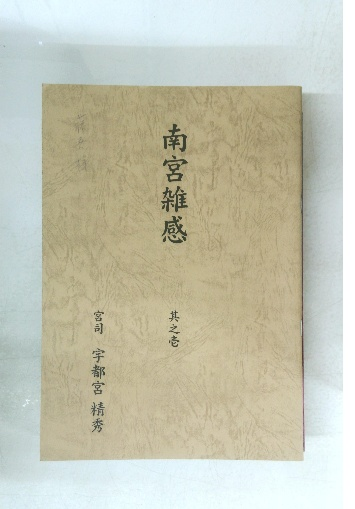 南宮雑感
其之壱
宮司 宇都宮精秀